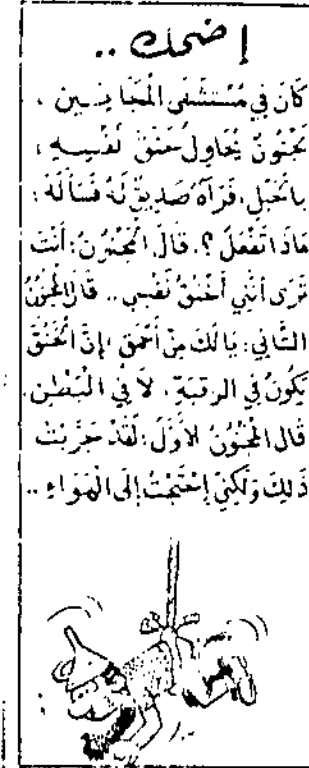 إضحك ..
كَانَ فِي مُسْتَشْفَى الْمَجَانِين ،
مَجْنُونٌ يُحَاوِلُ خَنْقَ نَفْسِهِ ،
بِالْحَبْلِ، فَرَآهُ صَدِيقٌ لَهُ فَسَأَلَهُ :
مَاذَا تَفْعَلُ ؟. قَالَ الْمَجْنُونُ: أَنْتَ
تَرَى أَنَّنِي أَخْنُقُ نَفْسِي .. قَالَ الْمَجْنُونُ
الثَّانِي: يَا لَكَ مِنْ أَحْمَقَ ، إِنَّ الْخَنْقَ
يَكُونُ فِي الرَّقَبَةِ . لاَ فِي الْبَطْنِ.
قَالَ الْمَجْنُونُ الأَوَّلُ: لَقَدْ جَرَّبْتُ
ذَلِكَ وَلَكِنِّي إِحْتَجْتُ إِلَى الْهَوَاءِ ..